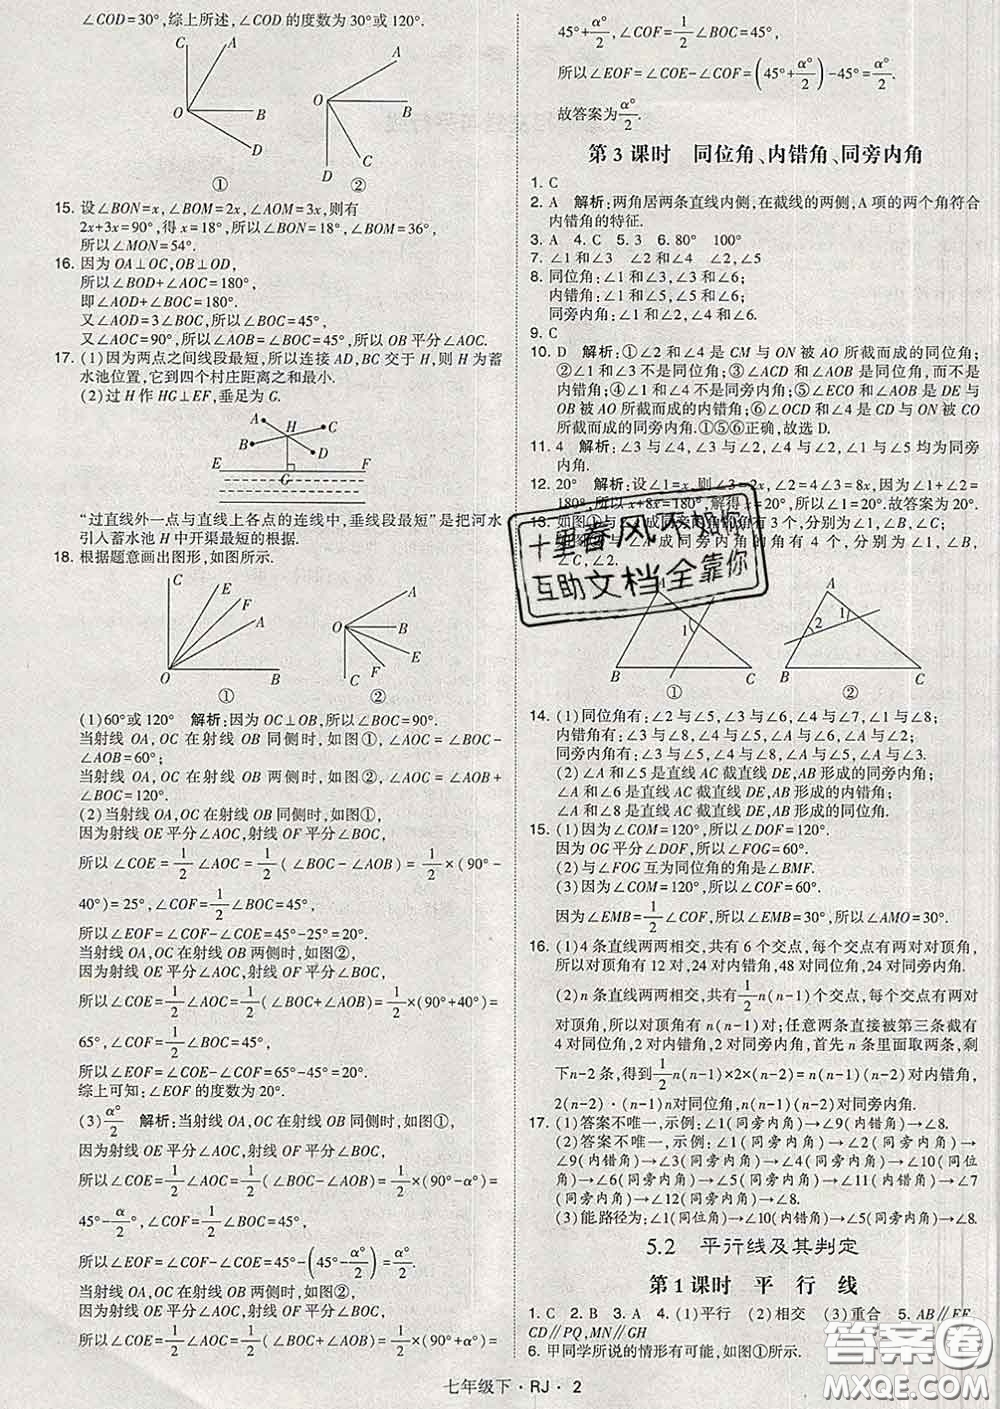 ∠COD=30°,综上所述,∠COD的度数为30°或120°.
C A
O B
D
①
A
O B
C
D
②
15. 设∠BON=x,∠BOM=2x,∠AOM=3x,则有
2x+3x=90°,得x=18°,所以∠BON=18°,∠BOM=36°,
所以∠MON=54°.
16. 因为OA⊥OC,OB⊥OD,
所以∠BOD+∠AOC=180°,
即∠AOD+∠BOC=180°.
又∠AOD=3∠BOC,所以∠BOC=45°,
又∠AOC=90°,所以∠AOB=45°,所以OB平分∠AOC.
17. (1)因为两点之间线段最短,所以连接AD,BC交于H,则H为蓄
水池位置,它到四个村庄距离之和最小.
(2)过H作HG⊥EF,垂足为G.
A H C
B D
E F
G
“过直线外一点与直线上各点的连线中,垂线段最短”是把河水
引入蓄水池H中开渠最短的根据.
18. 根据题意画出图形,如图所示.
C E
F
A
O B
①
A
O B
E
C F
②
(1)60°或120° 解析:因为OC⊥OB,所以∠BOC=90°.
当射线OA,OC在射线OB同侧时,如图①,∠AOC=∠BOC-
∠AOB=60°;
当射线OA,OC在射线OB两侧时,如图②,∠AOC=∠AOB+
∠BOC=120°.
(2)当射线OA,OC在射线OB同侧时,如图①,
因为射线OE平分∠AOC,射线OF平分∠BOC,
所以∠COE=1/2∠AOC=1/2(∠BOC-∠AOB)=1/2×(90°-
40°)=25°,∠COF=1/2∠BOC=45°,
所以∠EOF=∠COF-∠COE=45°-25°=20°.
当射线OA,OC在射线OB两侧时,如图②,
因为射线OE平分∠AOC,射线OF平分∠BOC,
所以∠COE=1/2∠AOC=1/2(∠BOC+∠AOB)=1/2×(90°+40°)=
65°,∠COF=1/2∠BOC=45°,
所以∠EOF=∠COE-∠COF=65°-45°=20°.
综上可知:∠EOF的度数为20°.
(3)α°/2 解析:当射线OA,OC在射线OB同侧时,如图①,
因为射线OE平分∠AOC,射线OF平分∠BOC,
所以∠COE=1/2∠AOC=1/2(∠BOC-∠AOB)=1/2×(90°-α°)=
45°-α/2°,∠COF=1/2∠BOC=45°,
所以∠EOF=∠COF-∠COE=45°-(45°-α°/2)=α°/2.
当射线OA,OC在射线OB两侧时,如图②,
因为射线OE平分∠AOC,射线OF平分∠BOC,
所以∠COE=1/2∠AOC=1/2(∠BOC+∠AOB)=1/2×(90°+α°)=
45°+α°/2,∠COF=1/2∠BOC=45°,
所以∠EOF=∠COE-∠COF=(45°+α°/2)-45°=α°/2.
故答案为α°/2.
第3课时 同位角、内错角、同旁内角
1. C
2. A 解析:两角居两条直线内侧,在截线的两侧,A项的两个角符合
内错角的特征.
3. A 4. C 5. 3 6. 80° 100°
7. ∠1和∠3 ∠2和∠4 ∠2,∠5
8. 同位角:∠1和∠3,∠3和∠6;
内错角:∠1和∠2,∠2和∠6;
同旁内角:∠1和∠6.
9. C
10. D 解析:①∠2和∠4是CM与ON被AO所截而成的同位角;
②∠1和∠3不是同位角;③∠ACD和∠AOB是同位角,而不是
内错角;④∠1和∠4不是同旁内角;⑤∠ECO和∠AOB是DE与
OB被AO所截而成的内错角;⑥∠OCD和∠4是CD与ON被CO
所截而成的同旁内角.①⑤⑥正确,故选D.
11. 4 解析:∠3与∠4,∠3与∠2,∠4与∠2,∠1与∠5均为同旁
内角.
12. 20° 解析:设∠1=x,则∠3=2x,∠2=4∠3=8x,因为∠1+∠2=
180°,所以x+8x=180°,解得x=20°,所以∠1=20°.故答案为20°.
13. 如图①与∠1成同旁内角有3个,分别为∠1,∠B,∠C.
如图②与∠1成同旁内角的有4个,分别为∠1,∠B,
∠C,∠2.
十里春风不如你
互助文档全靠你
1
B C
①
A
2 1
B C
②
14. (1)同位角有:∠2与∠5,∠3与∠6,∠4与∠7,∠1与∠8;
内错角有:∠3与∠8,∠4与∠5,∠4与∠2,∠6与∠A;
同旁内角有:∠5与∠A,∠8与∠A,∠4与∠8,∠5与∠3.
(2)∠A和∠5是直线AC截直线DE,AB形成的同旁内角;
∠A和∠6是直线AC截直线DE,AB形成的内错角;
∠A和∠8是直线AC截直线DE,AB形成的同位角.
15. (1)因为∠COM=120°,所以∠DOF=120°.
因为OG平分∠DOF,所以∠FOG=60°.
(2)与∠FOG互为同位角的角是∠BMF.
(3)因为∠COM=120°,所以∠COF=60°.
因为∠EMB=1/2∠COF,所以∠EMB=30°,所以∠AMO=30°.
16. (1)4条直线两两相交,共有6个交点,每个交点有两对对顶角,
所以对顶角有12对,24对内错角,48对同位角,24对同旁内角.
(2)n条直线两两相交,共有1/2n(n-1)个交点,每个交点有两对
对顶角,所以对顶角有n(n-1)对;任意两直接被第三条截共有
4对同位角,2对内错角,2对同旁内角,首先n条里面取两条,剩
下n-2条,得到1/2n(n-1)×2×(n-2)=n(n-1)(n-2)对内错角,
2(n-2)·(n-1)n对同位角,n(n-1)(n-2)对同旁内角.
17. (1)答案不唯一,示例:∠1(同旁内角)→∠9(内错角)→∠8.
(2)答案不唯一,示例:∠1(同旁内角)→∠2(同旁内角)→
∠9(内错角)→∠3(同旁内角)→∠4(同旁内角)→∠10(同位
角)→∠6(同旁内角)→∠5(同旁内角)→∠11(内错角)→∠7
(同旁内角)→∠12(同旁内角)→∠8.
(3)能.路径为:∠1(同位角)→∠10(内错角)→∠5(同旁内角)→∠8.
5.2 平行线及其判定
第1课时 平行线
1. C 2. B 3. A 4. (1)平行 (2)相交 (3)重合 5. AB∥EF,
CD∥PQ,MN∥GH
6. 甲同学所说的情形有可能,如图①所示.
七年级下·RJ·2
答案圈
MXQE.COM